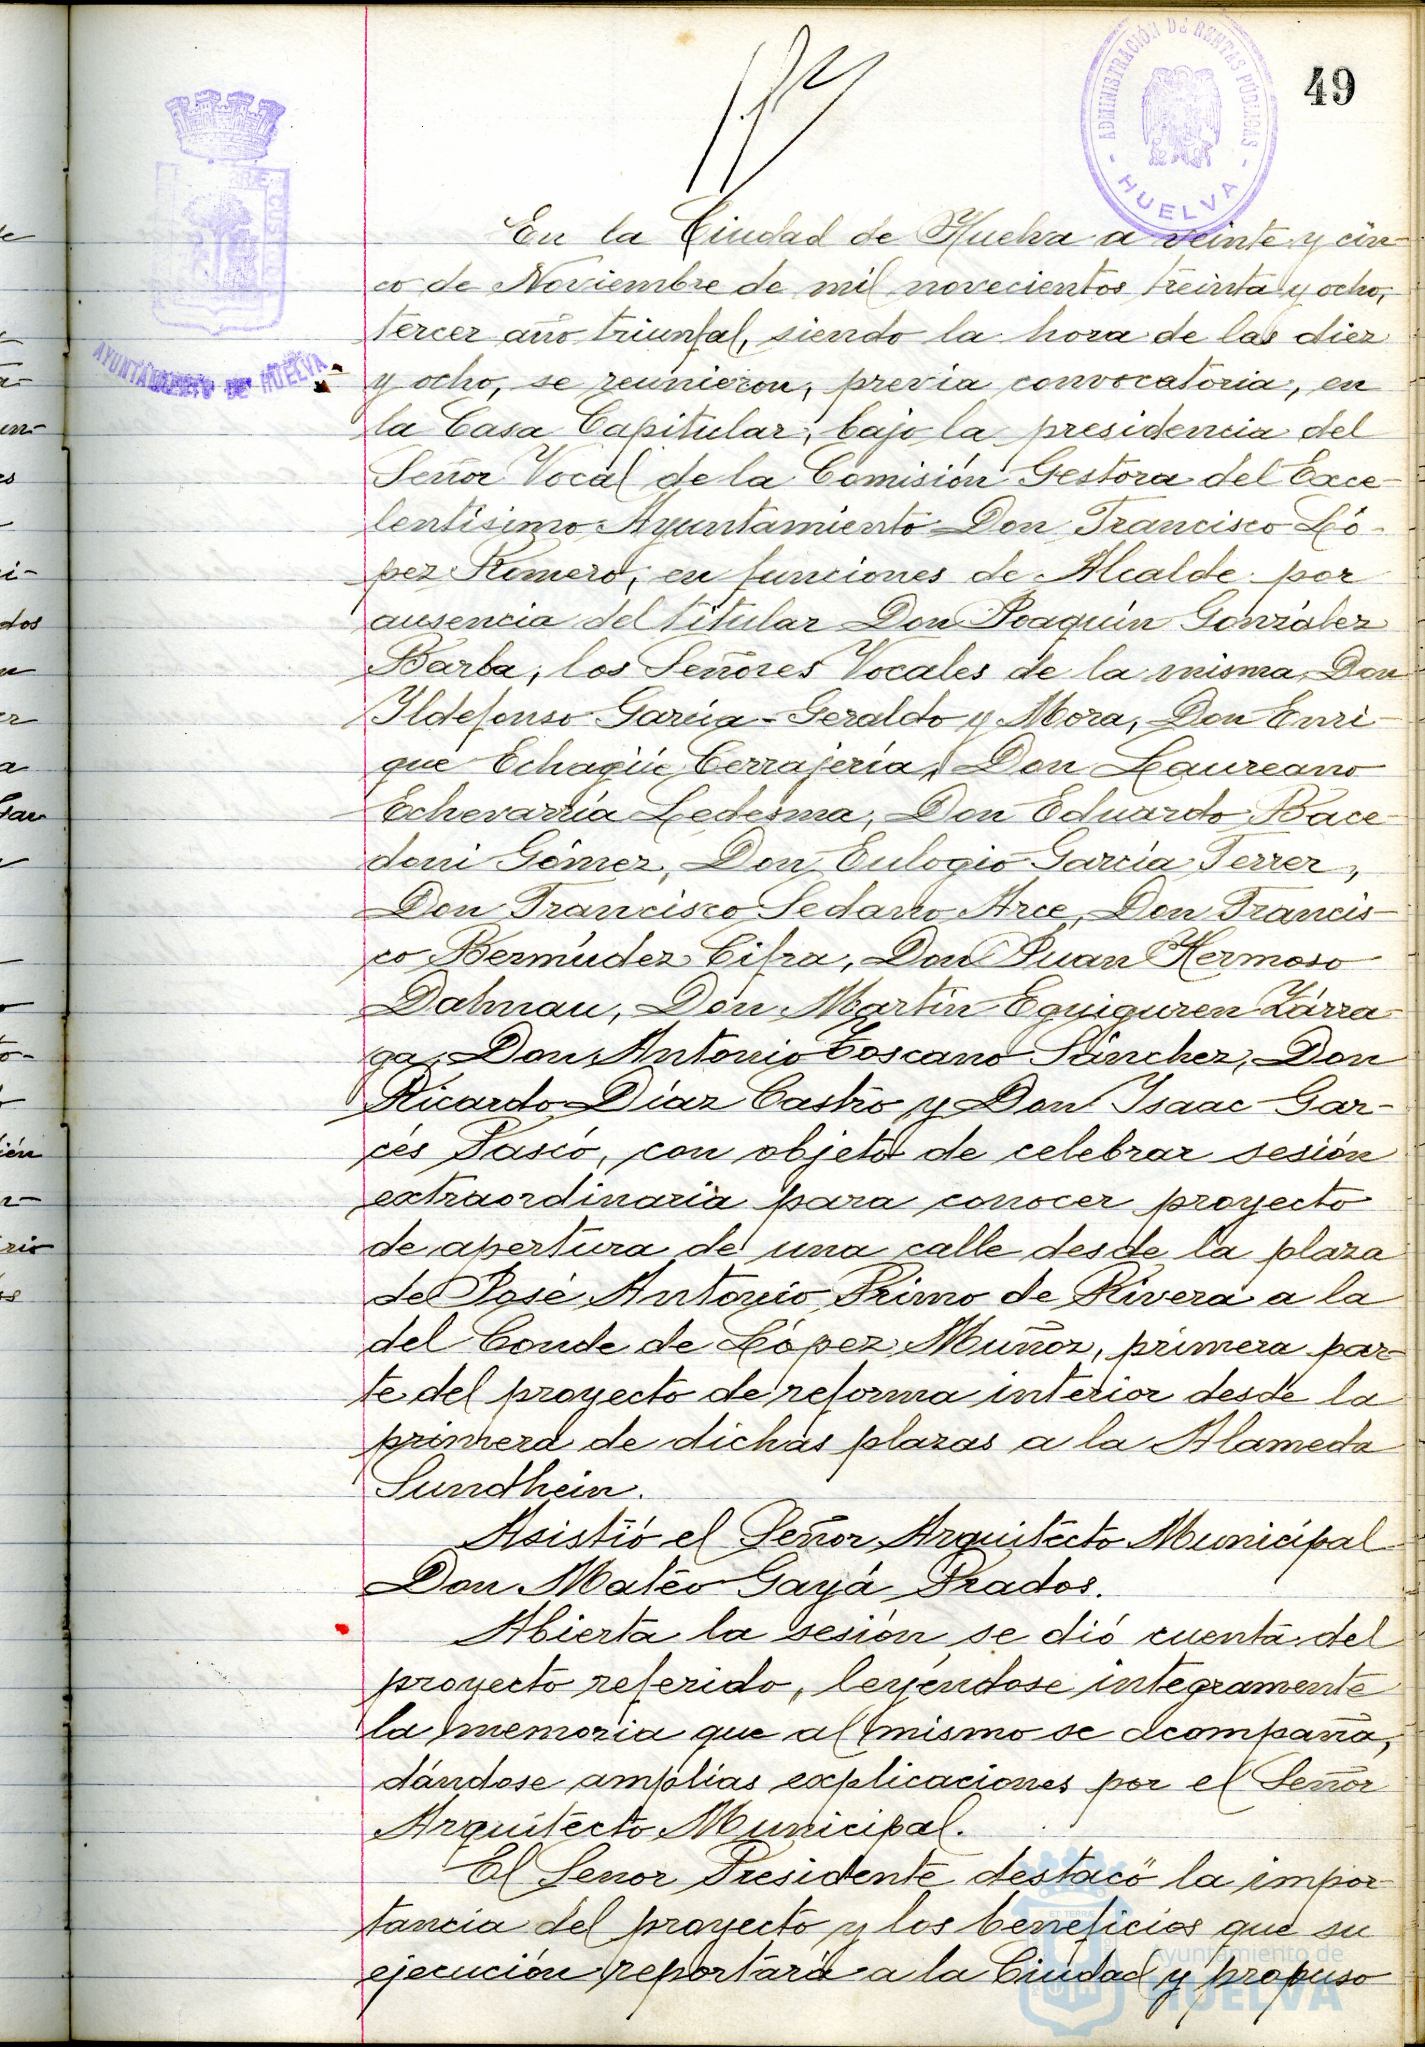 49
ADMINISTRACIÓN DE RENTAS PÚBLICAS
HUELVA
AYUNTAMIENTO DE HUELVA
En la Ciudad de Huelva a veinte y cin-
co de Noviembre de mil novecientos treinta y ocho,
tercer año triunfal, siendo la hora de las diez
y ocho, se reunieron, previa convocatoria, en
la Casa Capitular, bajo la presidencia del
Señor Vocal de la Comisión Gestora del Exce-
lentísimo Ayuntamiento Don Francisco Ló-
pez Romero, en funciones de Alcalde por
ausencia del titular Don Joaquín González
Barba, los Señores Vocales de la misma, Don
Ildefonso García-Geraldo y Mora, Don Enri-
que Echagüe Cerrajería, Don Laureano
Echevarría Ledesma, Don Eduardo Bace-
doni Gómez, Don Eulogio García Ferrer,
Don Francisco Sedano Arce, Don Francis-
co Bermúdez Cifra, Don Juan Hermoso
Dalmau, Don Martín Eguiguren Zárra-
ga, Don Antonio Toscano Sánchez, Don
Ricardo Díaz Castro y Don Isaac Gar-
cés Pascó, con objeto de celebrar sesión
extraordinaria para conocer proyecto
de apertura de una calle desde la plaza
de José Antonio Primo de Rivera a la
del Conde de López Muñoz, primera par-
te del proyecto de reforma interior desde la
primera de dichas plazas a la Alameda
Sundhein.
Asistió el Señor Arquitecto Municipal
Don Matéo Gayá Prados.
Abierta la sesión se dió cuenta del
proyecto referido, leyéndose integramente
la memoria que al mismo se acompaña,
dándose amplias explicaciones por el Señor
Arquitecto Municipal.
El Señor Presidente destacó la impor-
tancia del proyecto y los beneficios que su
ejecución reportará a la Ciudad y propuso
Ayuntamiento de
HUELVA